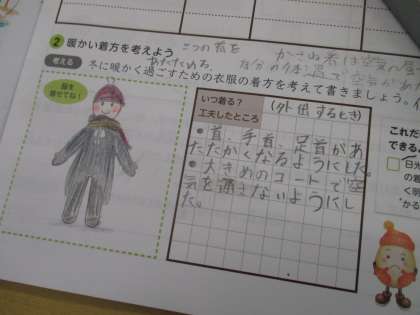 この首を
かさね着は空気の層
あたためる。
自分の体温で空気があた
❷ 暖かい着方を考えよう
考える
冬に暖かく過ごすための衣服の着方を考えて書きましょう。
服を
着せてね!
いつ着る?
工夫したところ
(外出するとき)
●首、手首、足首があ
たたかくなるようにした。
●大きめのコートで空
気を通さないようにし
た。
これだ
できる
日光
の着
く明
かる